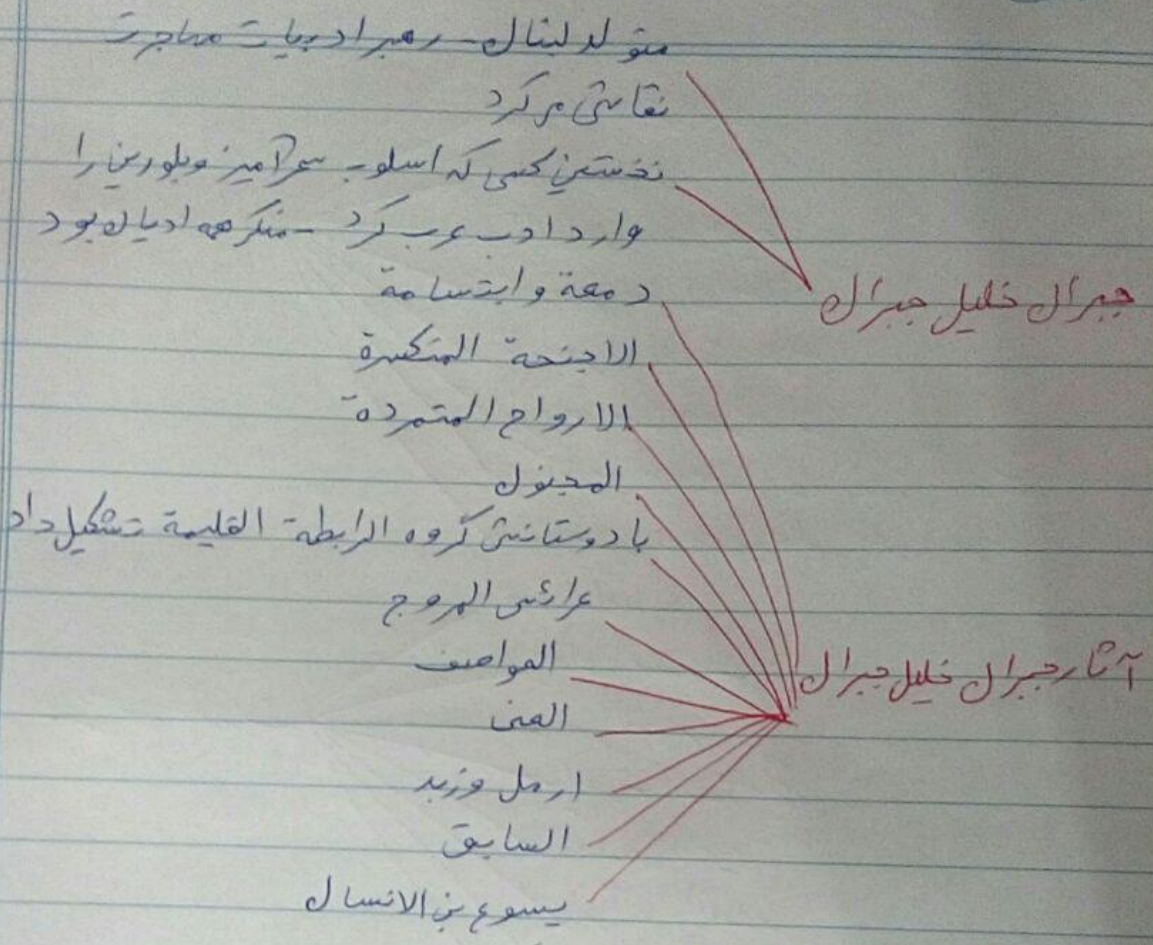 متولد لبنان - رهبر ادبیات مهاجرت
نقاشی می کرد
نخستین کسی که اسلوب سحرآمیز و بلورین را
وارد ادب عرب کرد - منکر همه ادیان بود
جبران خلیل جبران
دمعة و ابتسامة
الاجنحة المتکسرة
الارواح المتمردة
المجنون
با دوستانش گروه الرابطة القلیمة تشکیل داد
عرائس المروج
العواصف
آثار جبران خلیل جبران
ارمل وزبد
السابق
یسوع بن الانسان